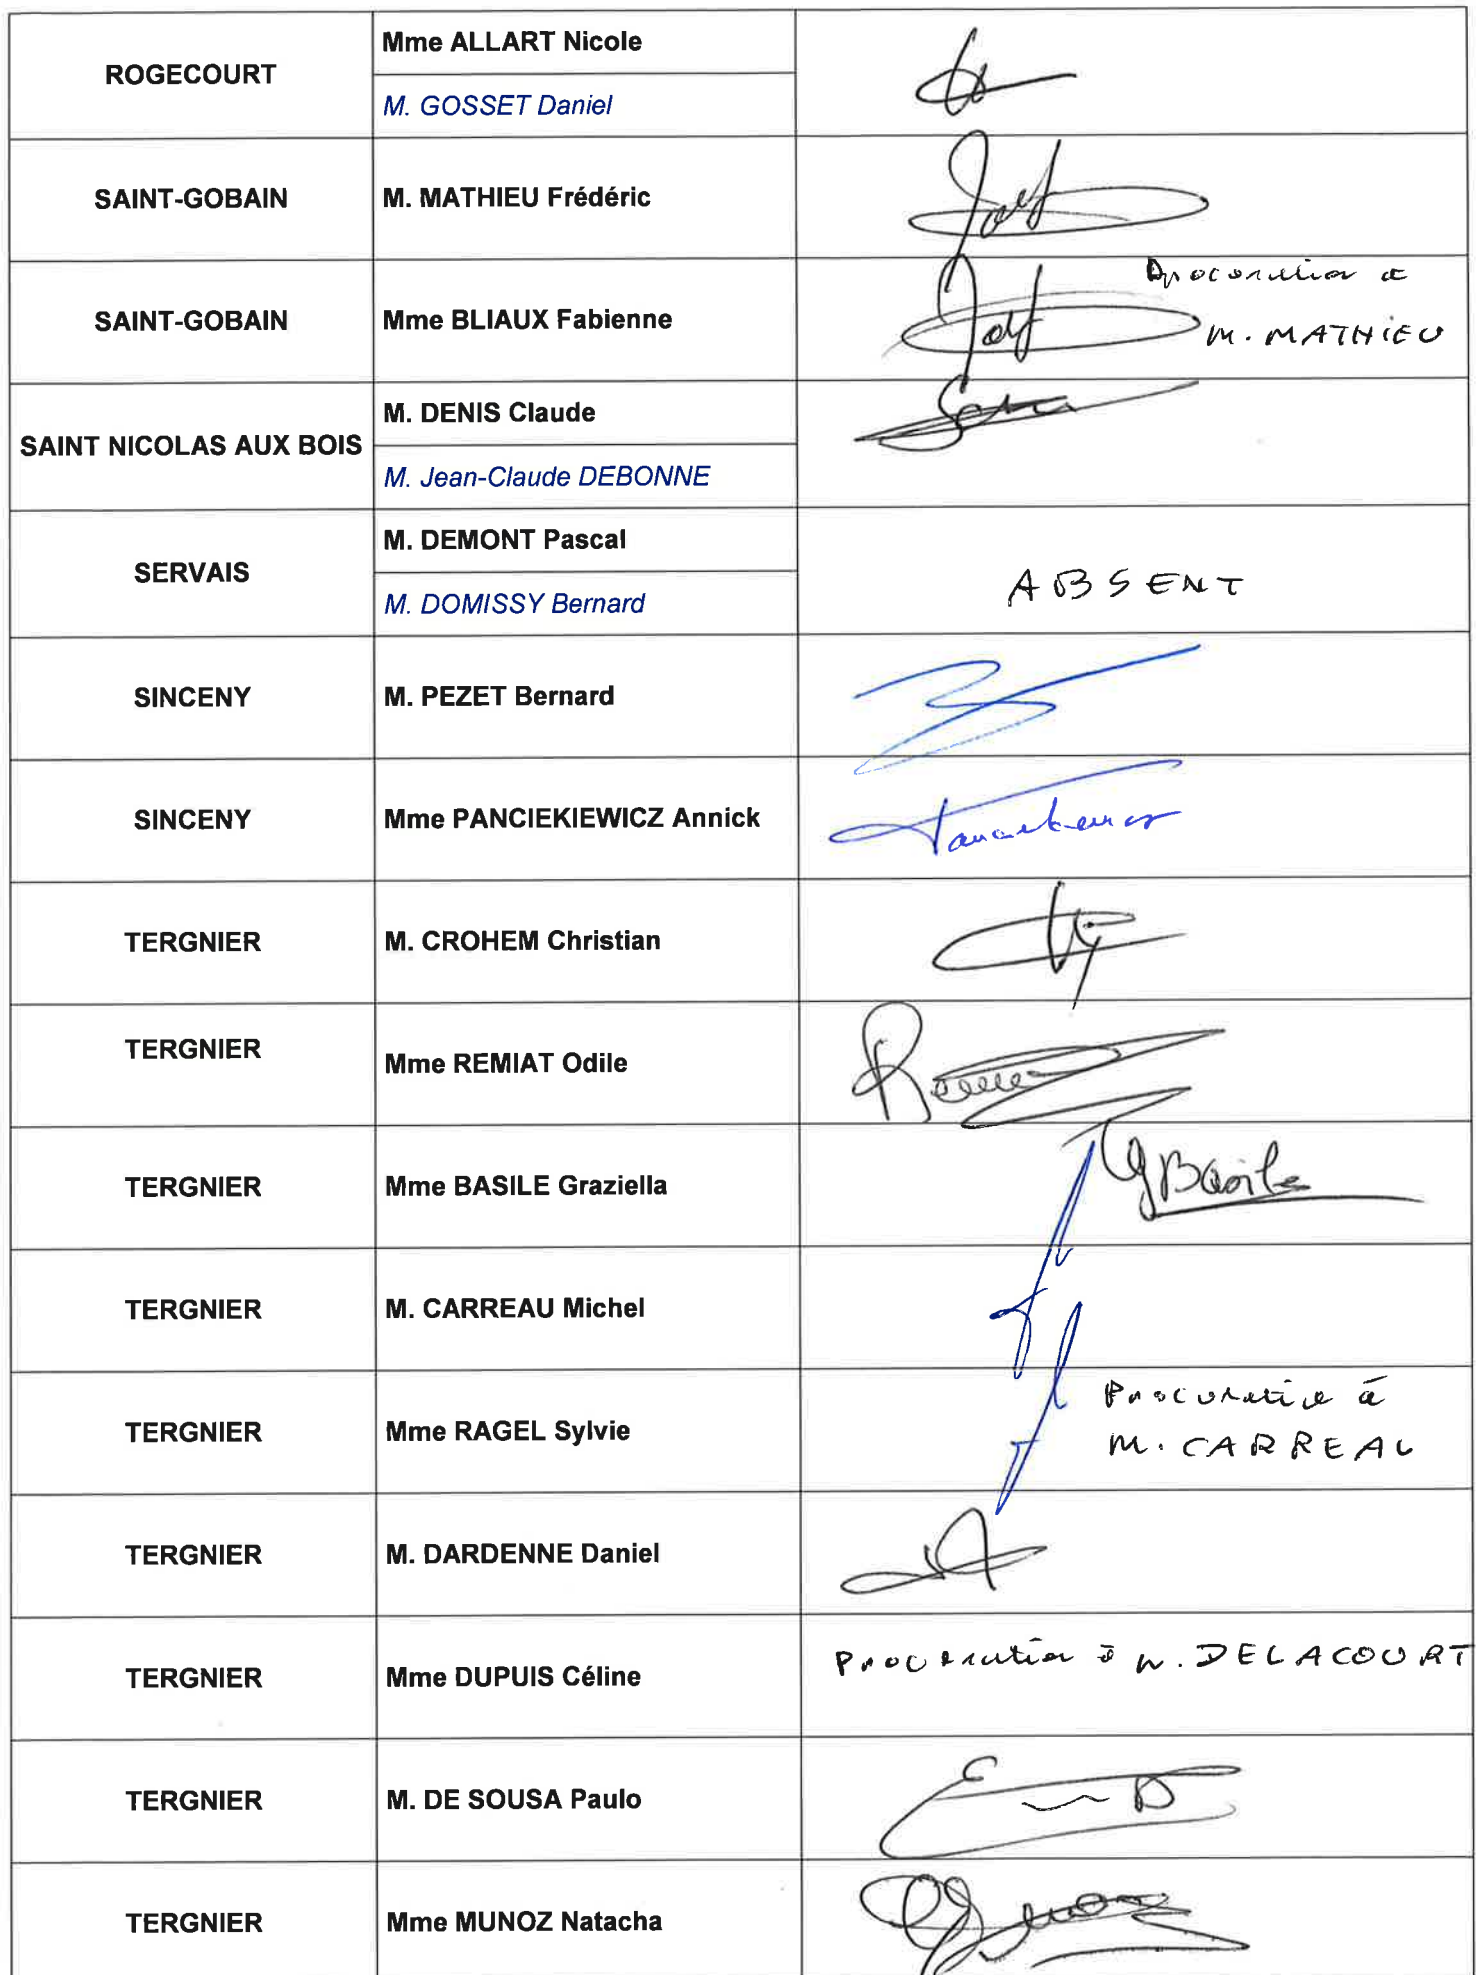 ROGECOURT
Mme ALLART Nicole
M. GOSSET Daniel
SAINT-GOBAIN
M. MATHIEU Frédéric
SAINT-GOBAIN
Mme BLIAUX Fabienne
Procuration à
M. MATHIEU
SAINT NICOLAS AUX BOIS
M. DENIS Claude
M. Jean-Claude DEBONNE
SERVAIS
M. DEMONT Pascal
M. DOMISSY Bernard
ABSENT
SINCENY
M. PEZET Bernard
SINCENY
Mme PANCIEKIEWICZ Annick
TERGNIER
M. CROHEM Christian
TERGNIER
Mme REMIAT Odile
TERGNIER
Mme BASILE Graziella
GBasile
TERGNIER
M. CARREAU Michel
TERGNIER
Mme RAGEL Sylvie
Procuration à
M. CARREAU
TERGNIER
M. DARDENNE Daniel
TERGNIER
Mme DUPUIS Céline
Procuration à M. DELACOURT
TERGNIER
M. DE SOUSA Paulo
TERGNIER
Mme MUNOZ Natacha